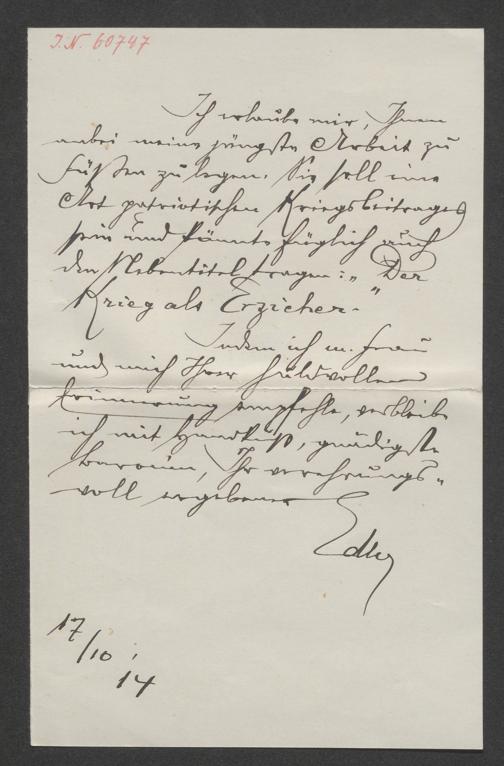 J.N. 60747
Ich erlaube mir, Ihnen
anbei meine jüngste Arbeit zu
Füßen zu legen. Sie soll eine
Art patriotischen Kriegsbeitrages
sein und könnte füglich auch
den Nebentitel tragen: „Der
Krieg als Erzieher."
Indem ich m. Frau
und mich Ihrer huldvollen
Erinnerung empfehle, verbleibe
ich mit Handkuß, gnädigste
Baronin, Ihr verehrungs-
voll ergebener
17/10 14